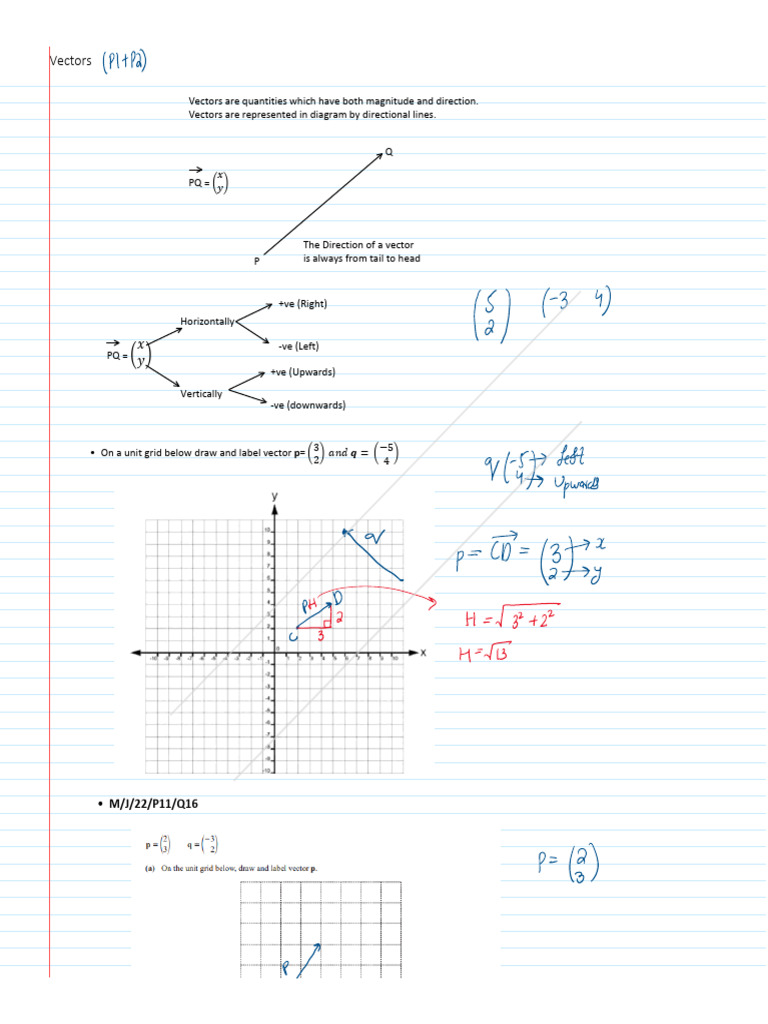 Vectors (P1+P2)
Vectors are quantities which have both magnitude and direction.
Vectors are represented in diagram by directional lines.
Q
PQ = (x y)
The Direction of a vector
is always from tail to head
P
+ve (Right)
(5 2) (-3 4)
Horizontally
-ve (Left)
PQ = (x y)
+ve (Upwards)
Vertically
-ve (downwards)
• On a unit grid below draw and label vector p= (3 2) and q = (−5 4)
q (-5 4) → Left
→ Upwards
y
q
p = CD = (3 2) → x
→ y
P H D
2
C 3
H = √3² + 2²
x
H = √13
• M/J/22/P11/Q16
p = (2 3) q = (−3 2)
(a) On the unit grid below, draw and label vector p.
P = (2 3)
P